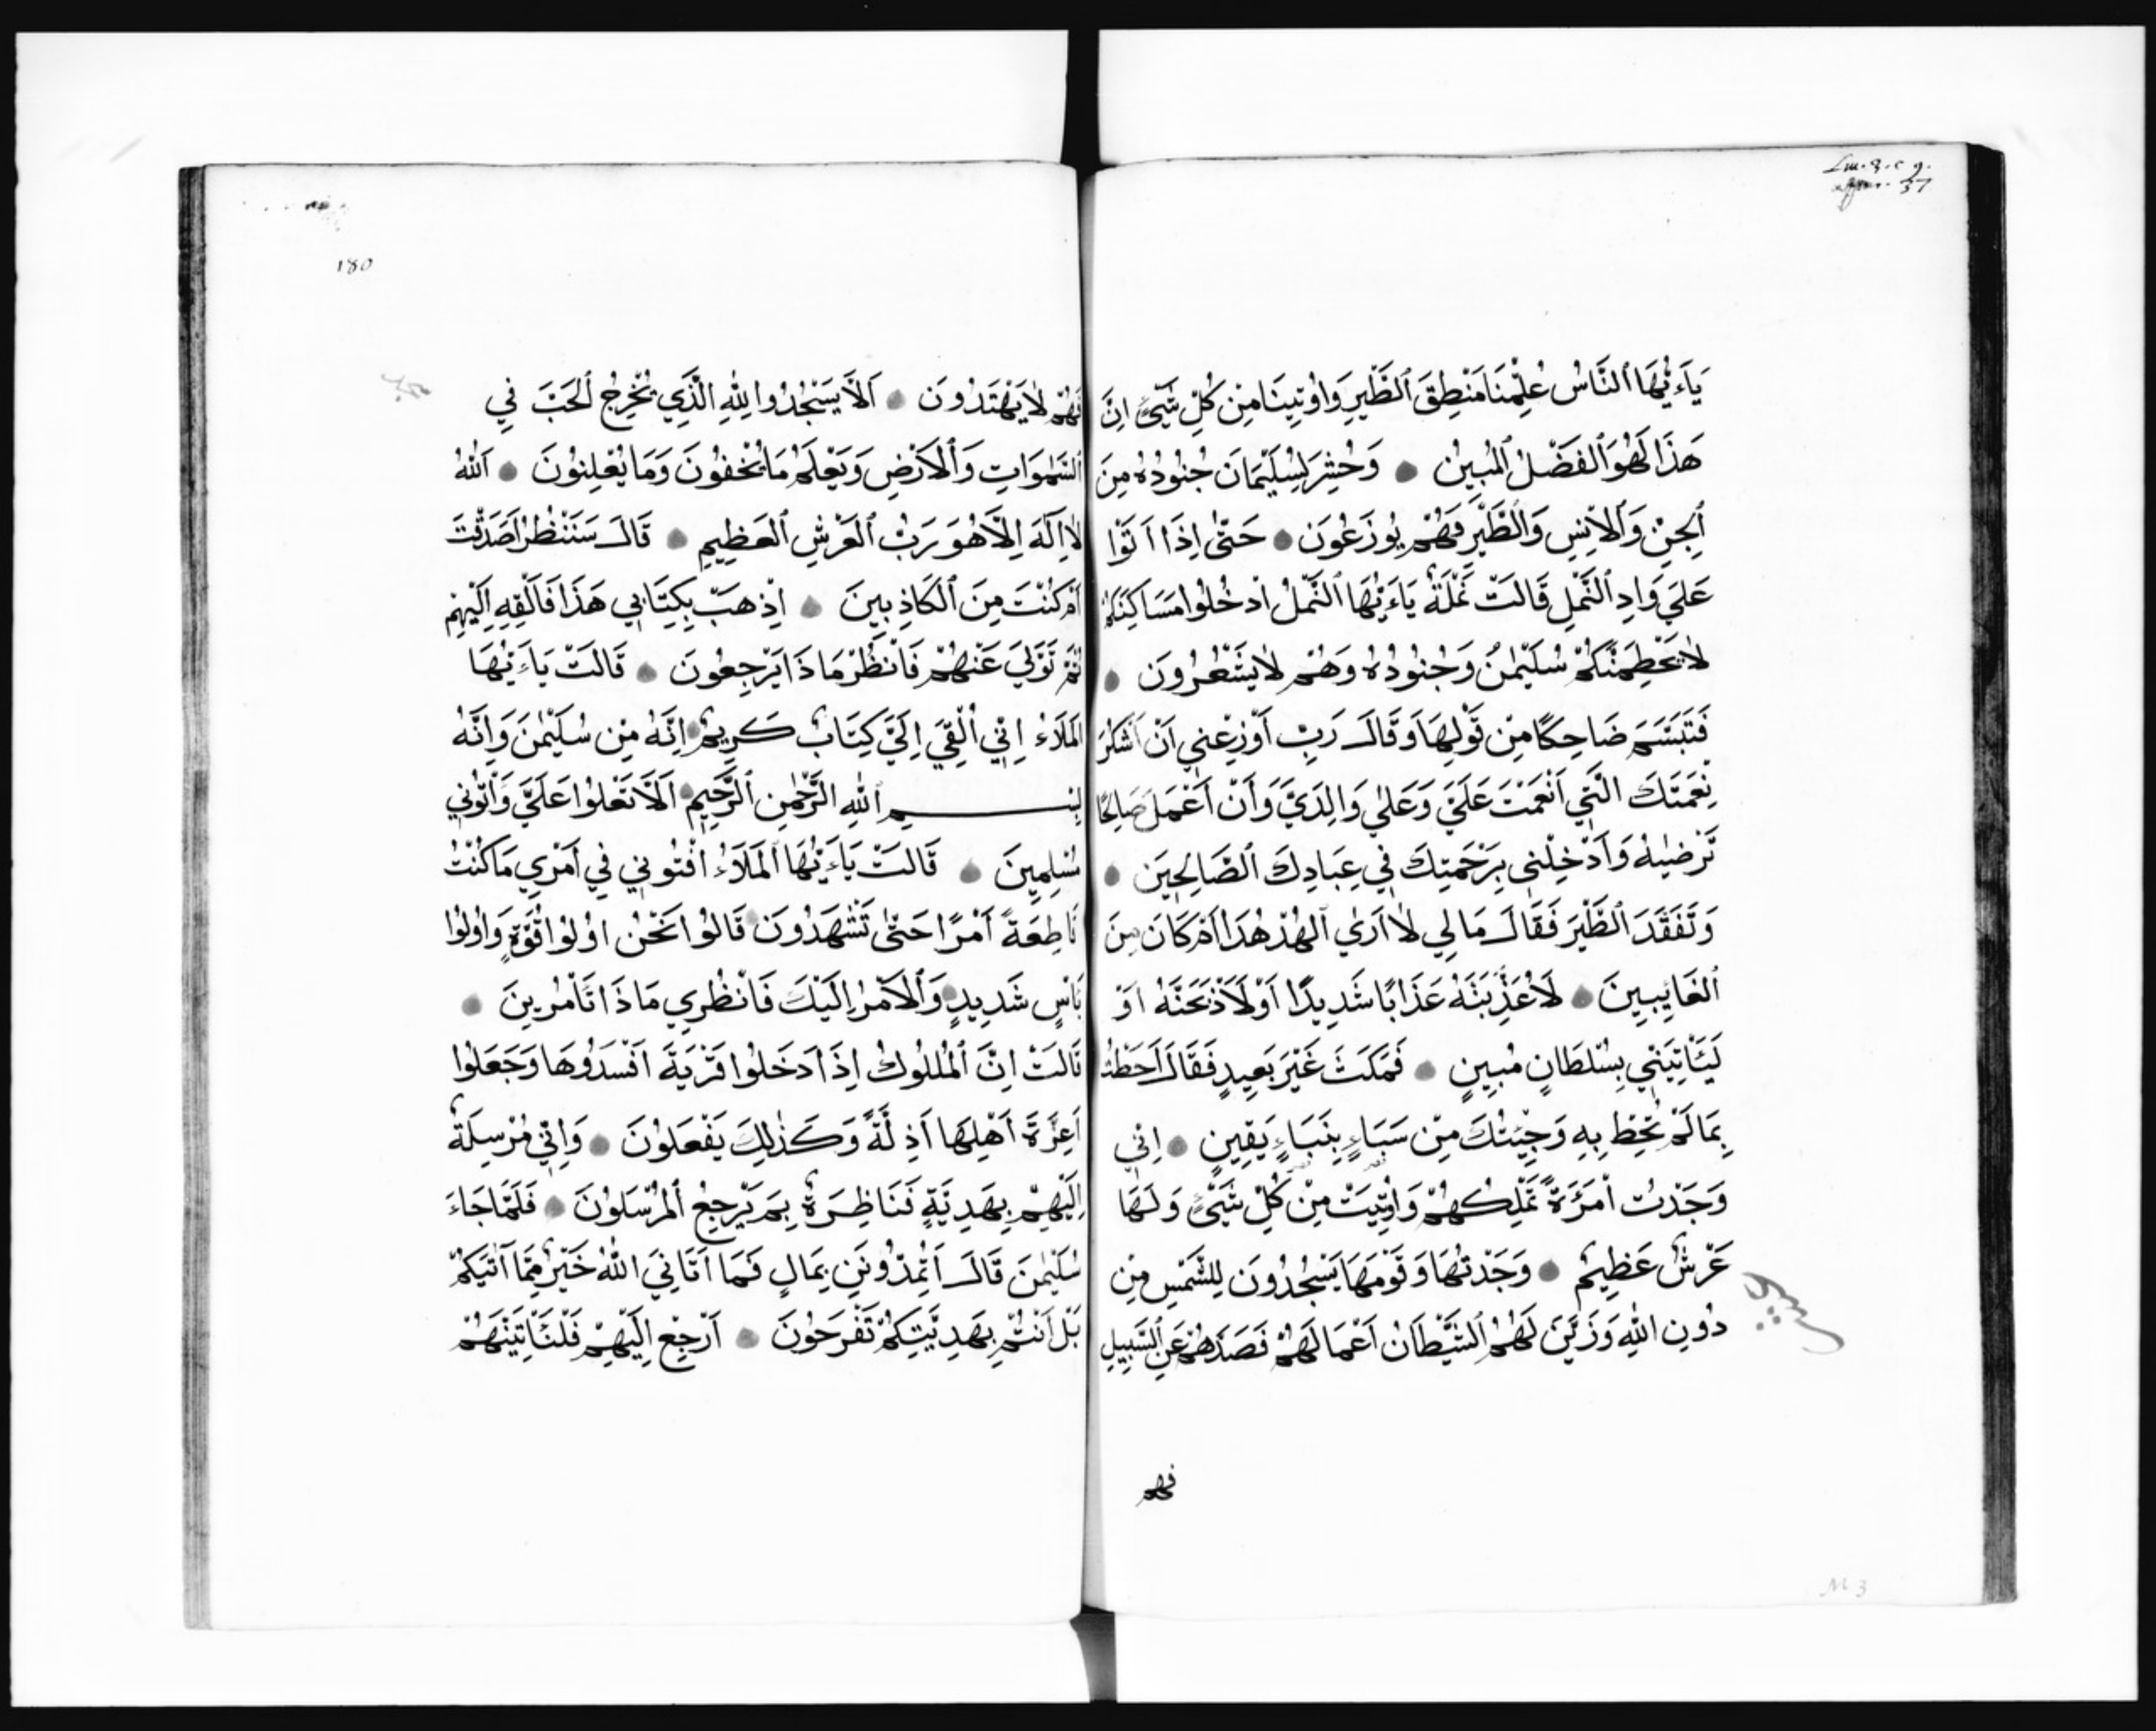 Lm. 8. c g.
37
يَاءَيُّهَا ٱلنَّاسُ عُلِّمْنَا مَنْطِقَ ٱلطَّيْرِ وَاُوتِينَا مِنْ كُلِّ شَيْءٍ اِنَّ
هَذَا لَهُوَ ٱلفَضْلُ ٱلمُبِينُ وَحُشِرَ لِسُلَيْمَانَ جُنُودُهُ مِنَ
ٱلجِنِّ وَٱلاِنْسِ وَٱلطَّيْرِ فَهُمْ يُوزَعُونَ حَتَّى اِذَا اَتَوْا
عَلَى وَادِ ٱلنَّمْلِ قَالَتْ نَمْلَةٌ يَاءَيُّهَا ٱلنَّمْلُ ادْخُلُوا مَسَاكِنَكُمْ
لاَ يَحْطِمَنَّكُمْ سُلَيْمٰنُ وَجُنُودُهُ وَهُمْ لاَ يَشْعُرُونَ
فَتَبَسَّمَ ضَاحِكًا مِنْ قَوْلِهَا وَقَالَ رَبِّ اَوْزِعْنِي اَنْ اَشْكُرَ
نِعْمَتَكَ الَّتِي اَنْعَمْتَ عَلَيَّ وَعَلٰى وَالِدَيَّ وَاَنْ اَعْمَلَ صَالِحًا
تَرْضٰيهُ وَاَدْخِلْنِي بِرَحْمَتِكَ فِي عِبَادِكَ ٱلصَّالِحِينَ
وَتَفَقَّدَ ٱلطَّيْرَ فَقَالَ مَالِي لاَ اَرَى ٱلهُدْهُدَ اَمْ كَانَ مِنَ
ٱلغَايِبِينَ لَاُعَذِّبَنَّهُ عَذَابًا شَدِيدًا اَوْ لَاَذْبَحَنَّهُ اَوْ
لَيَئَاتِيَنِّي بِسُلطَانٍ مُبِينٍ فَمَكَثَ غَيْرَ بَعِيدٍ فَقَالَ اَحَطْتُ
بِمَا لَمْ تُحِطْ بِهِ وَجِئْتُكَ مِنْ سَبَاءٍ بِنَبَاءٍ يَقِينٍ اِنِّي
وَجَدْتُ ٱمْرَءَةً تَمْلِكُهُمْ وَاُوتِيَتْ مِنْ كُلِّ شَيْءٍ وَلَهَا
عَرْشٌ عَظِيمٌ وَجَدْتُهَا وَقَوْمَهَا يَسْجُدُونَ لِلشَّمْسِ مِنْ
دُونِ اللّٰهِ وَزَيَّنَ لَهُمُ ٱلشَّيْطَانُ اَعْمَالَهُمْ فَصَدَّهُمْ عَنِ ٱلسَّبِيلِ
فهم
M 3
180
فَهُمْ لاَ يَهْتَدُونَ اَلاَّ يَسْجُدُوا لِلّٰهِ الَّذِي يُخْرِجُ ٱلخَبَ فِي
ٱلسَّمٰوَاتِ وَٱلاَرْضِ وَيَعْلَمُ مَا تُخْفُونَ وَمَا يُعْلِنُونَ اَللّٰهُ
لاَ اِلَهَ اِلاَّ هُوَ رَبُّ ٱلعَرْشِ ٱلعَظِيمِ قَالَ سَنَنْظُرُ اَصَدَقْتَ
اَمْ كُنْتَ مِنَ ٱلكَاذِبِينَ اِذْهَبْ بِكِتَابِي هَذَا فَاَلْقِهِ اِلَيْهِمْ
ثُمَّ تَوَلَّى عَنْهُمْ فَانْظُرْ مَاذَا يَرْجِعُونَ قَالَتْ يَاءَيُّهَا
المَلَاءُ اِنِّي اُلْقِيَ اِلَيَّ كِتَابٌ كَرِيمٌ اِنَّهُ مِنْ سُلَيْمٰنَ وَاِنَّهُ
بِسْمِ ٱللّٰهِ الرَّحْمٰنِ ٱلرَّحِيمِ اَلاَّ تَعْلُوا عَلَيَّ وَاْتُونِي
مُسْلِمِينَ قَالَتْ يَاءَيُّهَا ٱلمَلَاءُ اَفْتُونِي فِي اَمْرِي مَا كُنْتُ
قَاطِعَةً اَمْرًا حَتَّى تَشْهَدُونَ قَالُوا نَحْنُ اُولُوا قُوَّةٍ وَاُولُوا
بَاْسٍ شَدِيدٍ وَٱلاَمْرُ اِلَيْكَ فَانْظُرِي مَاذَا تَاْمُرِينَ
قَالَتْ اِنَّ ٱلمُلُوكَ اِذَا دَخَلُوا قَرْيَةً اَفْسَدُوهَا وَجَعَلُوا
اَعِزَّةَ اَهْلِهَا اَذِلَّةً وَكَذٰلِكَ يَفْعَلُونَ وَاِنِّي مُرْسِلَةٌ
اِلَيْهِمْ بِهَدِيَّةٍ فَنَاظِرَةٌ بِمَ يَرْجِعُ ٱلمُرْسَلُونَ فَلَمَّا جَاءَ
سُلَيْمٰنَ قَالَ اَتُمِدُّونَنِ بِمَالٍ فَمَا اَتَانِيَ اللّٰهُ خَيْرٌ مِمَّا اَتٰيكُمْ
بَلْ اَنْتُمْ بِهَدِيَّتِكُمْ تَفْرَحُونَ اَرْجِعْ اِلَيْهِمْ فَلَنَئَاتِيَنَّهُمْ